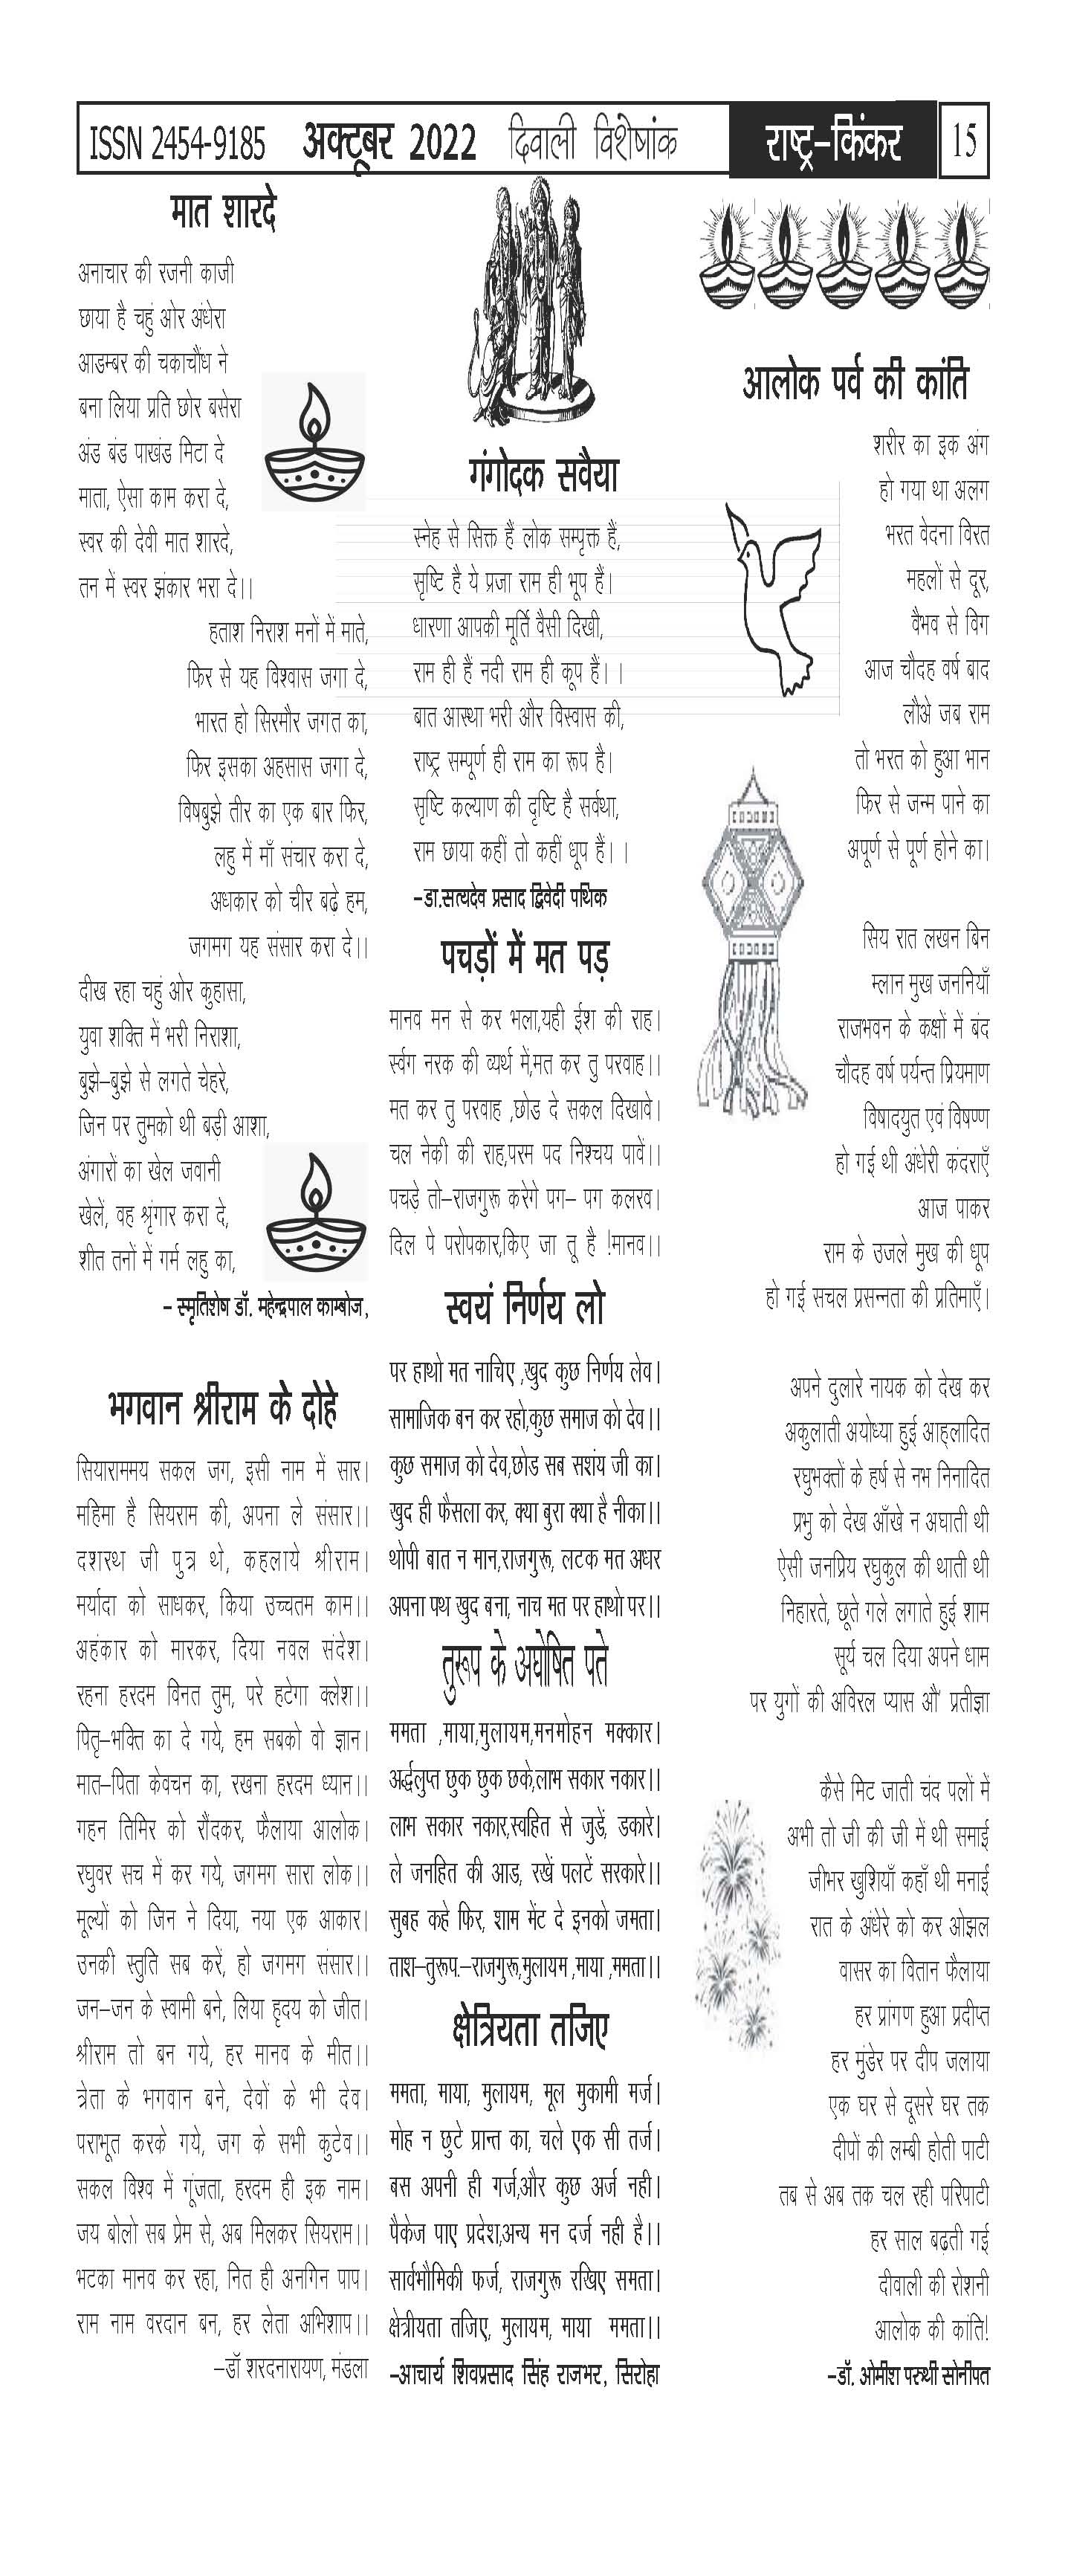 ISSN 2454-9185 अक्टूबर 2022 दिवाली विशेषांक राष्ट्र-किंकर 15
मात शारदे
अनाचार की रजनी काजी
छाया है चहुं ओर अंधेरा
आडम्बर की चकाचौंध ने
बना लिया प्रति छोर बसेरा
अंड बंड पाखंड मिटा दे
माता, ऐसा काम करा दे,
स्वर की देवी मात शारदे,
तन में स्वर झंकार भरा दे।।
हताश निराश मनों में माते,
फिर से यह विश्वास जगा दे,
भारत हो सिरमौर जगत का,
फिर इसका अहसास जगा दे,
विषबुझे तीर का एक बार फिर,
लहु में माँ संचार करा दे,
अधकार को चीर बढ़े हम,
जगमग यह संसार करा दे।।
दीख रहा चहुं ओर कुहासा,
युवा शक्ति में भरी निराशा,
बुझे-बुझे से लगते चेहरे,
जिन पर तुमको थी बड़ी आशा,
अंगारों का खेल जवानी
खेलें, वह श्रृंगार करा दे,
शीत तनों में गर्म लहु का,
- स्मृतिशेष डॉ. महेन्द्रपाल काम्बोज,
भगवान श्रीराम के दोहे
सियाराममय सकल जग, इसी नाम में सार।
महिमा है सियराम की, अपना ले संसार।।
दशरथ जी पुत्र थे, कहलाये श्रीराम।
मर्यादा को साधकर, किया उच्चतम काम।।
अहंकार को मारकर, दिया नवल संदेश।
रहना हरदम विनत तुम, परे हटेगा क्लेश।।
पितृ-भक्ति का दे गये, हम सबको वो ज्ञान।
मात-पिता केवचन का, रखना हरदम ध्यान।।
गहन तिमिर को रौंदकर, फैलाया आलोक।
रघुवर सच में कर गये, जगमग सारा लोक।।
मूल्यों को जिन ने दिया, नया एक आकार।
उनकी स्तुति सब करें, हो जगमग संसार।।
जन-जन के स्वामी बने, लिया हृदय को जीत।
श्रीराम तो बन गये, हर मानव के मीत।।
त्रेता के भगवान बने, देवों के भी देव।
पराभूत करके गये, जग के सभी कुटेव।।
सकल विश्व में गूंजता, हरदम ही इक नाम।
जय बोलो सब प्रेम से, अब मिलकर सियराम।।
भटका मानव कर रहा, नित ही अनगिन पाप।
राम नाम वरदान बन, हर लेता अभिशाप।।
-डॉ शरदनारायण, मंडला
गंगोदक सवैया
स्नेह से सिक्त हैं लोक सम्पृक्त हैं,
सृष्टि है ये प्रजा राम ही भूप हैं।
धारणा आपकी मूर्ति वैसी दिखी,
राम ही हैं नदी राम ही कूप हैं।।
बात आस्था भरी और विस्वास की,
राष्ट्र सम्पूर्ण ही राम का रूप है।
सृष्टि कल्याण की दृष्टि है सर्वथा,
राम छाया कहीं तो कहीं धूप हैं।।
-डा.सत्यदेव प्रसाद द्विवेदी पथिक
पचड़ों में मत पड़
मानव मन से कर भला,यही ईश की राह।
र्स्वग नरक की व्यर्थ में,मत कर तु परवाह।।
मत कर तु परवाह ,छोड दे सकल दिखावे।
चल नेकी की राह,परम पद निश्चय पावें।।
पचड़े तो-राजगुरू करेगे पग- पग कलरव।
दिल पे परोपकार,किए जा तू है !मानव।।
स्वयं निर्णय लो
पर हाथो मत नाचिए ,खुद कुछ निर्णय लेव।
सामाजिक बन कर रहो,कुछ समाज को देव।।
कुछ समाज को देव,छोड सब सशंय जी का।
खुद ही फैसला कर, क्या बुरा क्या है नीका।।
थोपी बात न मान,राजगुरू, लटक मत अधर
अपना पथ खुद बना, नाच मत पर हाथो पर।।
तुरूप के अघोषित पते
ममता ,माया,मुलायम,मनमोहन मक्कार।
अर्द्धलुप्त छुक छुक छके,लाभ सकार नकार।।
लाभ सकार नकार,स्वहित से जुडें, डकारे।
ले जनहित की आड, रखें पलटें सरकारे।।
सुबह कहे फिर, शाम मेंट दे इनको जमता।
ताश-तुरूप.-राजगुरू,मुलायम ,माया ,ममता।।
क्षेत्रियता तजिए
ममता, माया, मुलायम, मूल मुकामी मर्ज।
मोह न छुटे प्रान्त का, चले एक सी तर्ज।
बस अपनी ही गर्ज,और कुछ अर्ज नही।
पैकेज पाए प्रदेश,अन्य मन दर्ज नही है।।
सार्वभौमिकी फर्ज, राजगुरू रखिए समता।
क्षेत्रीयता तजिए, मुलायम, माया ममता।।
-आचार्य शिवप्रसाद सिंह राजभर, सिरोहा
आलोक पर्व की कांति
शरीर का इक अंग
हो गया था अलग
भरत वेदना विरत
महलों से दूर,
वैभव से विग
आज चौदह वर्ष बाद
लौअे जब राम
तो भरत को हुआ भान
फिर से जन्म पाने का
अपूर्ण से पूर्ण होने का।
सिय रात लखन बिन
म्लान मुख जननियाँ
राजभवन के कक्षों में बंद
चौदह वर्ष पर्यन्त प्रियमाण
विषादयुत एवं विषण्ण
हो गई थी अंधेरी कंदराएँ
आज पाकर
राम के उजले मुख की धूप
हो गई सचल प्रसन्नता की प्रतिमाएँ।
अपने दुलारे नायक को देख कर
अकुलाती अयोध्या हुई आह्लादित
रघुभक्तों के हर्ष से नभ निनादित
प्रभु को देख आँखे न अघाती थी
ऐसी जनप्रिय रघुकुल की थाती थी
निहारते, छूते गले लगाते हुई शाम
सूर्य चल दिया अपने धाम
पर युगों की अविरल प्यास औ' प्रतीज्ञा
कैसे मिट जाती चंद पलों में
अभी तो जी की जी में थी समाई
जीभर खुशियाँ कहाँ थी मनाई
रात के अंधेरे को कर ओझल
वासर का वितान फैलाया
हर प्रांगण हुआ प्रदीप्त
हर मुंडेर पर दीप जलाया
एक घर से दूसरे घर तक
दीपों की लम्बी होती पाटी
तब से अब तक चल रही परिपाटी
हर साल बढ़ती गई
दीवाली की रोशनी
आलोक की कांति!
-डॉ. ओमीश परुथी सोनीपत